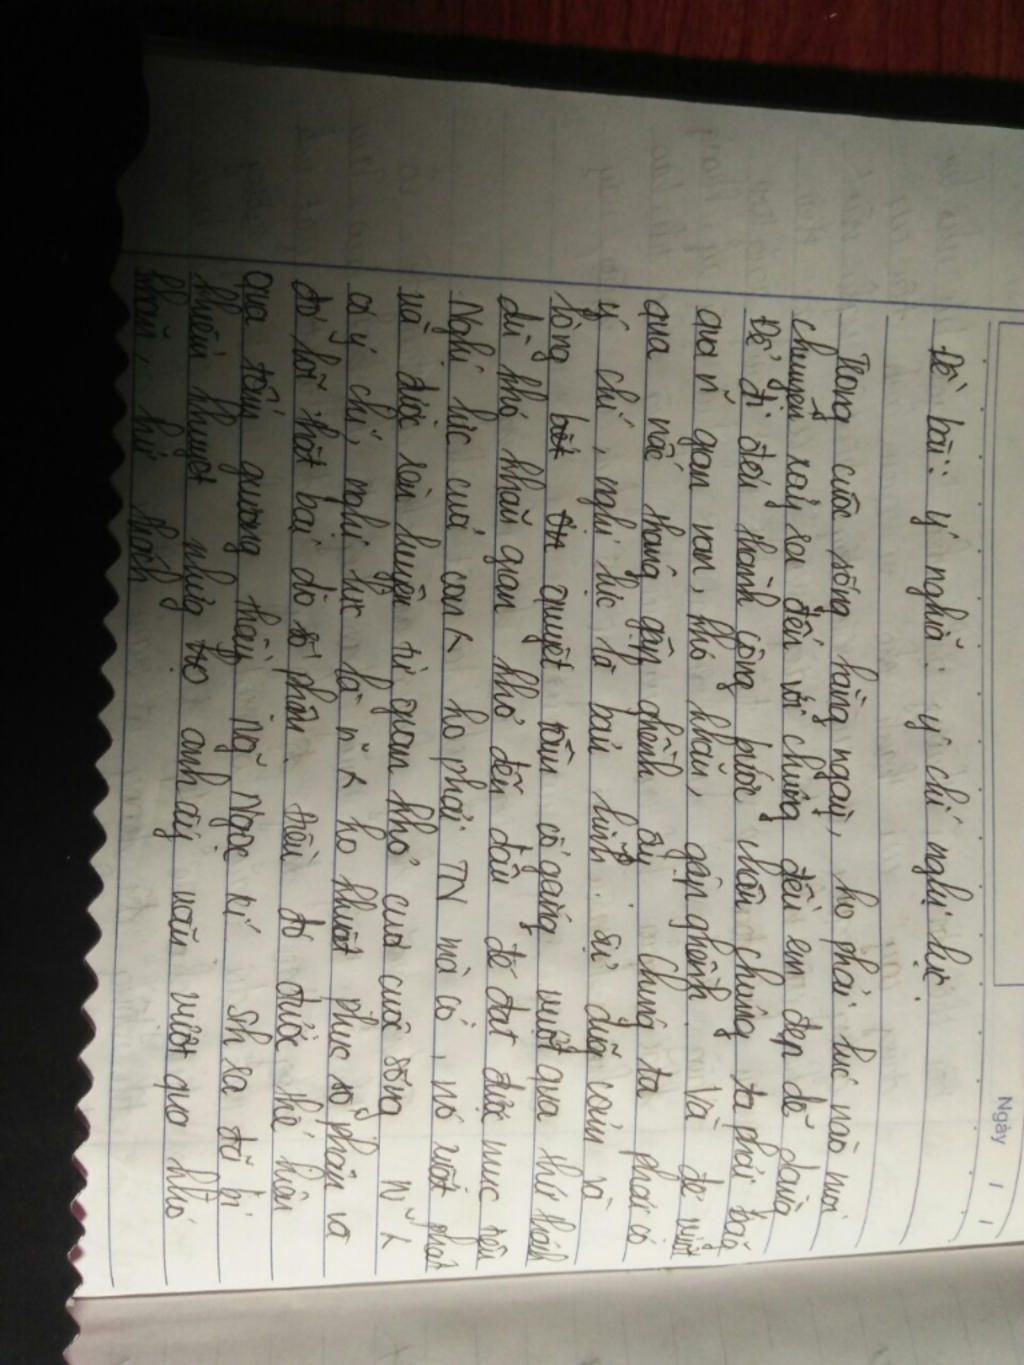 Ngày / /
Đề bài: ý nghĩa ý chí nghị lực.
Trong cuộc sống hằng ngày, ko phải lúc nào mọi
chuyện xảy ra đến với chúng đều em đẹp dễ dàng
Để đi đến thành công bước chân chúng ta phải trải
qua n~ gian nan, khó khăn, gập ghềnh. Và để vượt
qua nấc thang gập ghềnh ấy chúng ta phải có
ý chí, nghị lực là bản lĩnh. sự dũng cảm và
lòng quyết tâm cố gắng vượt qua thử thách
dù khó khăn gian khổ đến đâu để đạt được mục tiêu
Nghị lực của con ng ko phải TN mà có, nó xuất phát
và được rèn luyện từ gian khổ của cuộc sống n~ ng
có ý chí, nghị lực là n~ ng ko khuất phục số phận và
đổ lỗi thất bại do số phận. Điều đó được thể hiện
qua tấm gương thầy ng~ Ngọc kí sh ra đã bị
khiếm khuyết nhưng anh ấy vẫn vượt qua khó
khăn, thử thách